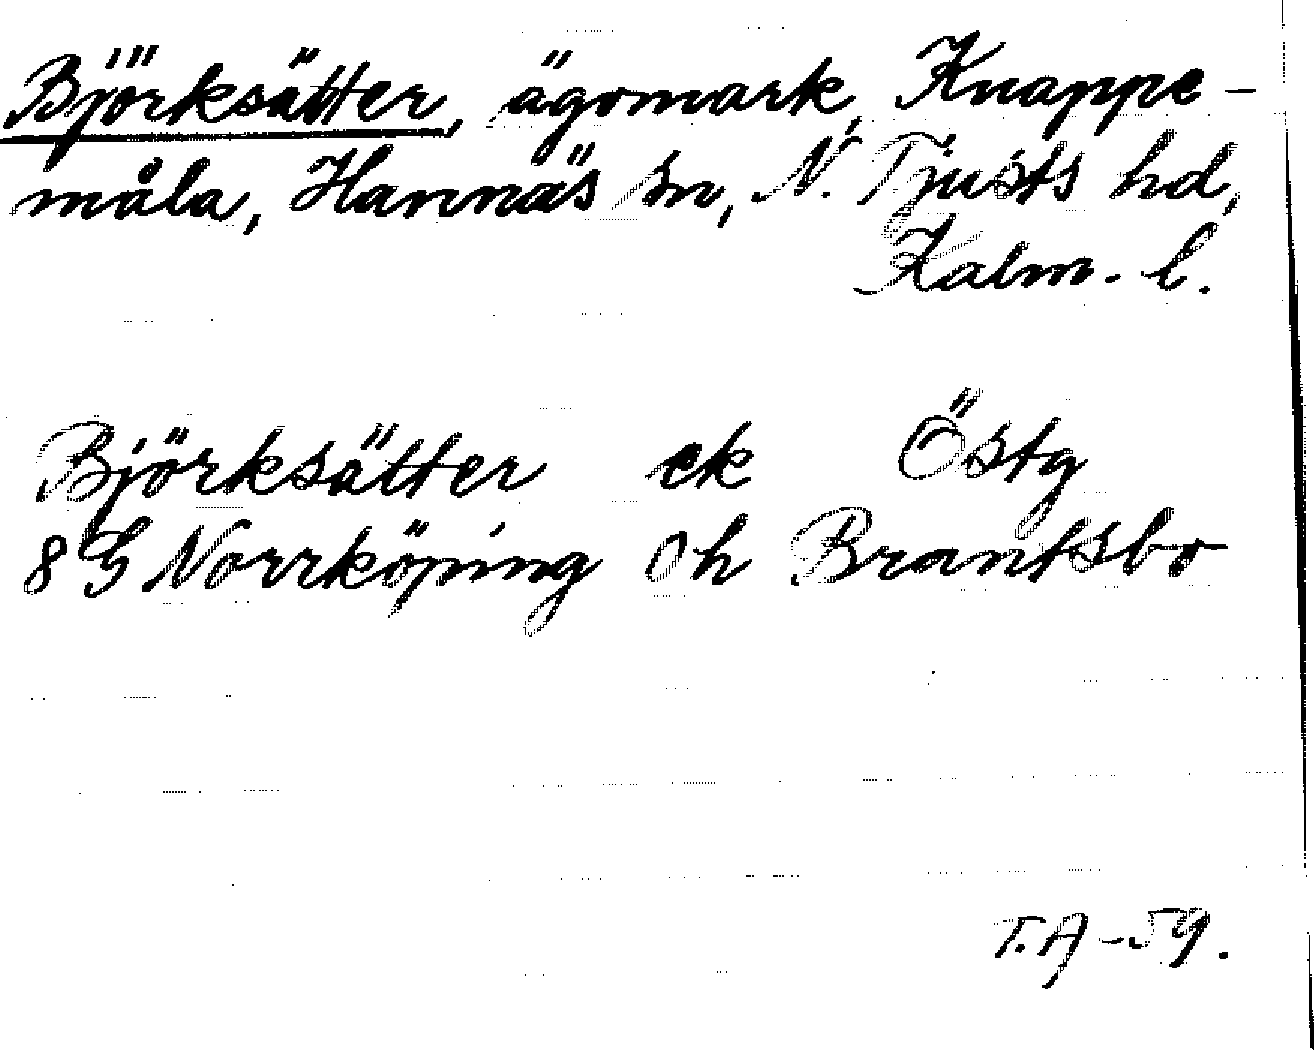 Björksätter, ägomark, Knappe-
måla, Hannäs sn, N. Tjusts hd,
Kalm. l.
Björksätter ek Östg
8 G Norrköping 0h Brantsbo
T.A-59.